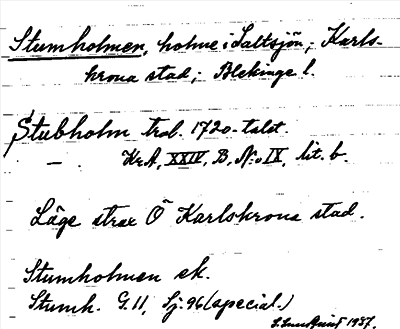 Stumholmen, holme i Saltsjön, Karls-
krona stad; Blekinge l.
Stubholm trol. 1720-talet.
— Kr.A, XXIV, B, No IX, lit. b.
Läge strax Ö Karlskrona stad.
Stumholmen ek.
Stumh. G.11, Sj. 96 (special.)
1937.